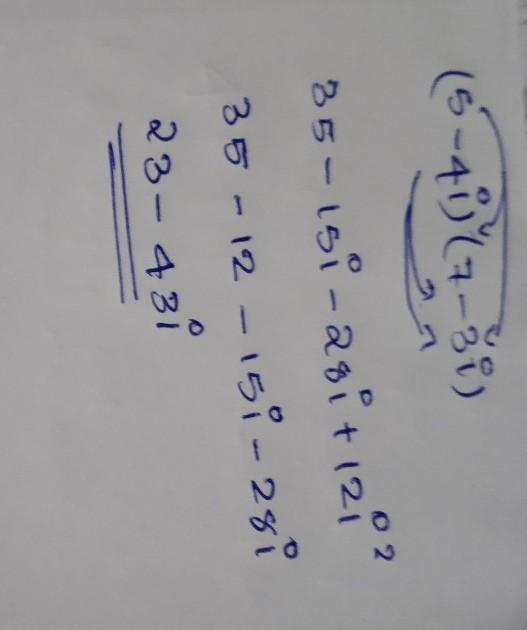 (5-4i)(7-3i)
35-15i-28i+12i²
35-12-15i-28i
23-43i